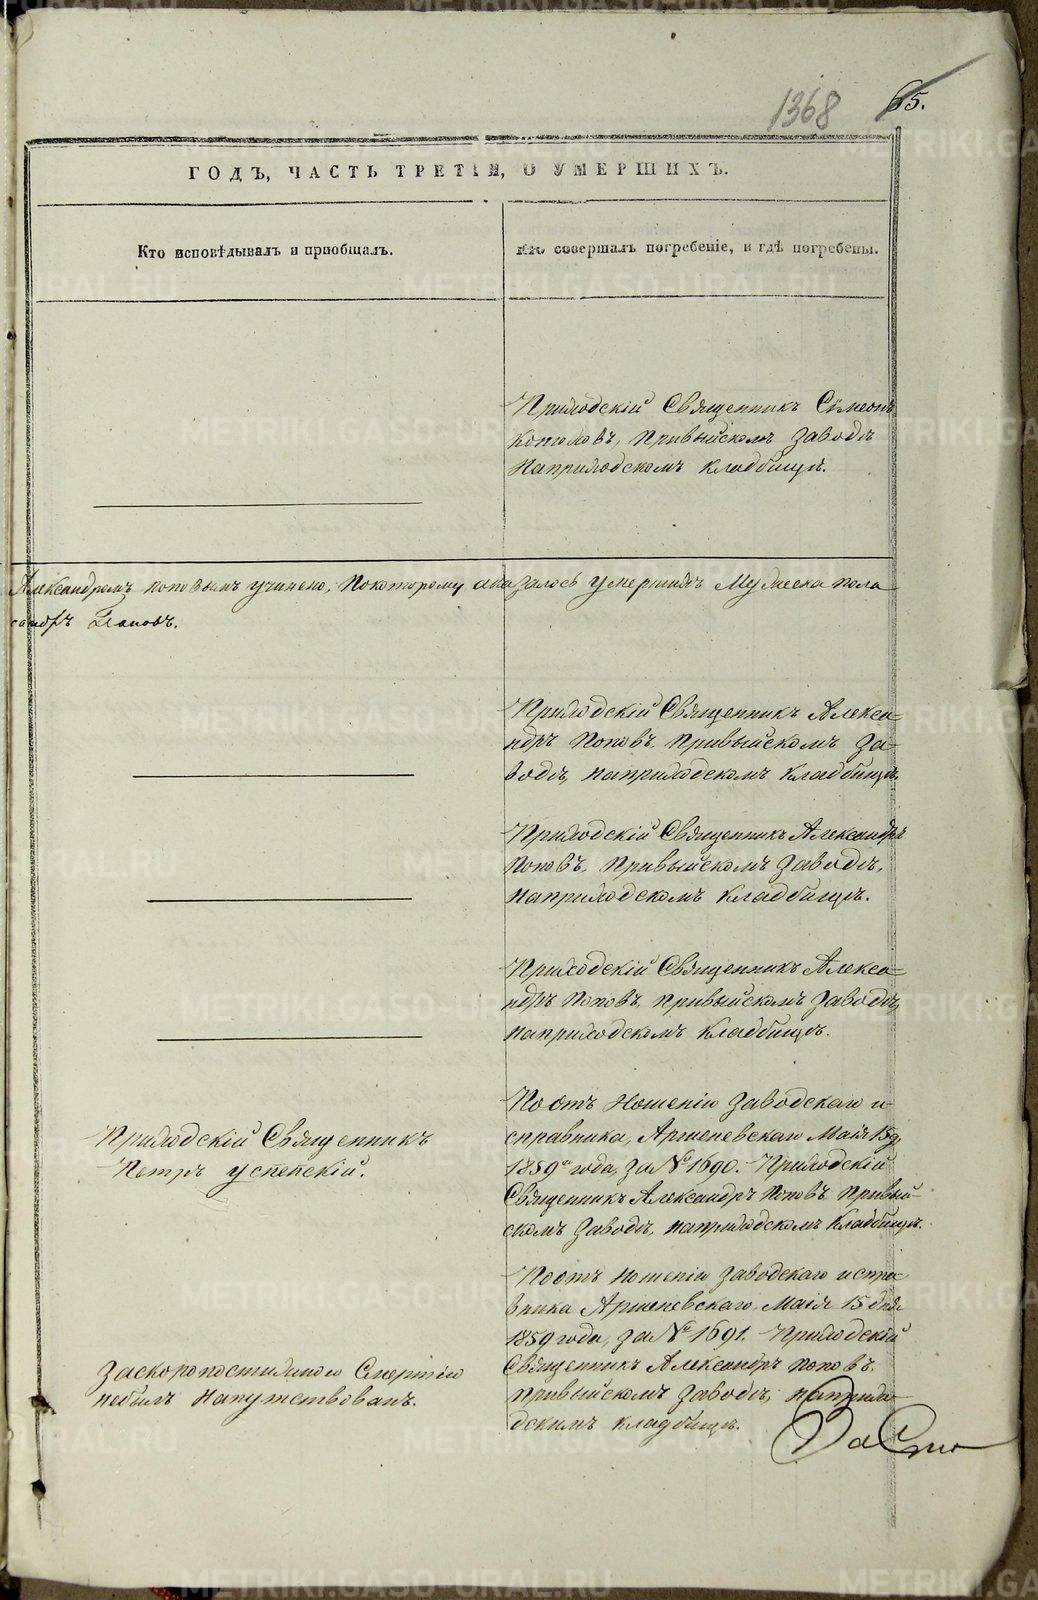 1368 65.
ГОДЪ, ЧАСТЬ ТРЕТІЯ, О УМЕРШИХЪ.
Кто исповѣдывалъ и пріобщалъ.
Кто совершалъ погребеніе, и гдѣ погребены.
Приходскій Священникъ Сѵмеонъ
Копыловъ, Привыйскомъ заводѣ
Наприходскомъ кладбищѣ.
Александромъ Поповымъ учинено, Покоторому оказалось умершихъ Мужеска пола
сандръ Поповъ.
Приходскій Священникъ Алекса-
ндръ Поповъ, Привыйскомъ За-
водѣ, наприходскомъ кладбищѣ.
Приходскій Священникъ Александръ
Поповъ, Привыйскомъ Заводѣ,
Наприходскомъ кладбищѣ.
Приходскій Священникъ Алекса-
ндръ Поповъ, Привыйскомъ Заводѣ,
Наприходскомъ кладбищѣ.
Приходскій Священникъ
Петръ Успенскій.
Поотъ Ношенію Заводскаго и-
справника, Аршеневскаго Маія 15 д.
1859го года, за № 1690. Приходскій
Священникъ Александръ Поповъ Привый-
скомъ Заводѣ, наприходскомъ Кладбищѣ.
Заскоропостижною Смертію
небылъ Напутствованъ.
Поотъ Ношенію Заводскаго испра-
вника Аршеневскаго, Маія 15 дня
1859 года, за № 1691. Приходскій
Священникъ Александръ Поповъ,
Привыйскомъ Заводѣ, наприхо-
дскимъ кладбищѣ.
METRIKI.GASO-URAL.RU